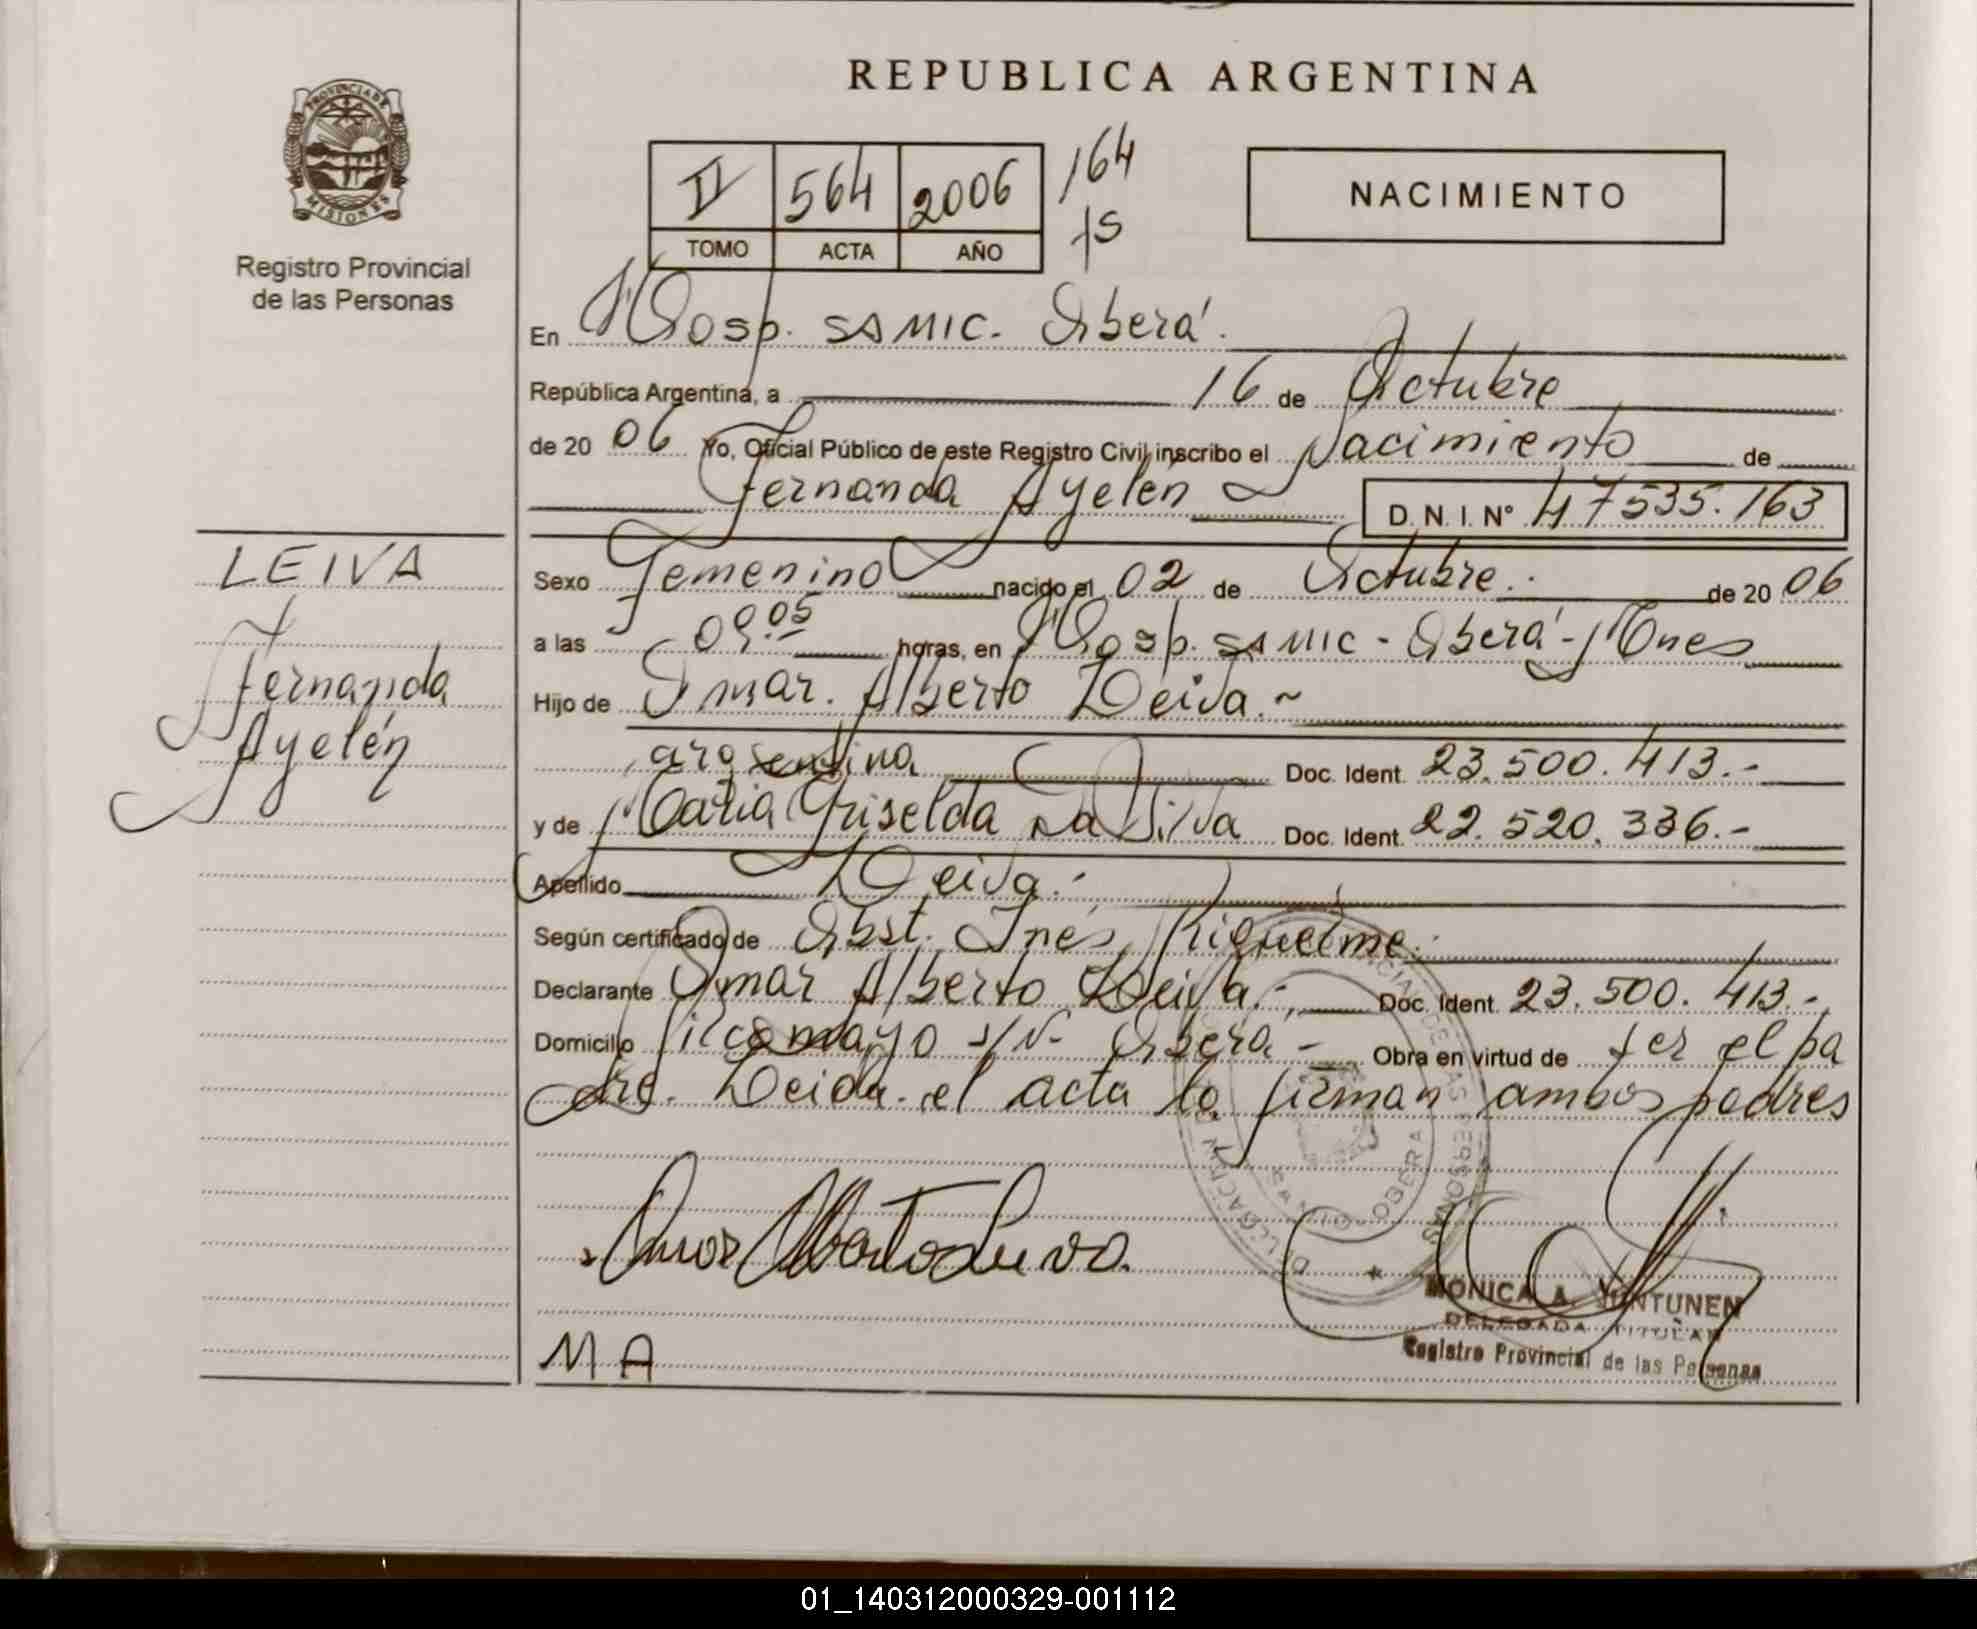 REPUBLICA ARGENTINA
PROVINCIA DE
MISIONES
Registro Provincial
de las Personas
II 564 2006 164
TOMO ACTA AÑO fs
NACIMIENTO
En Hosp. SAMIC. Oberá.
República Argentina, a 16 de Octubre
de 20 06 Yo, Oficial Público de este Registro Civil inscribo el Nacimiento de
Fernanda Ayelén D. N. I. Nº 47535.163
LEIVA
Fernanda
Ayelén
Sexo Femenino nacido el 02 de Octubre. de 20 06
a las 09.05 horas, en Hosp. SAMIC - Oberá - Mnes
Hijo de Omar. Alberto Leiva.~
argentina Doc. Ident. 23.500.413.-
y de Maria Griselda Da Silva Doc. Ident. 22.520.336.-
Apellido Leiva.-
Según certificado de Obst. Inés Riquelme.
Declarante Omar Alberto Leiva.- Doc. Ident. 23.500.413.-
Domicilio Pilcomayo s/Nº Oberá - Obra en virtud de ser el pa
dre. Leida el acta la firman ambos padres
Omar Alberto Leiva.
DELEGACION
OBERA
MONICA A.
DELEGADA TITULAR
Registro Provincial de las Personas
M A
01_140312000329-001112